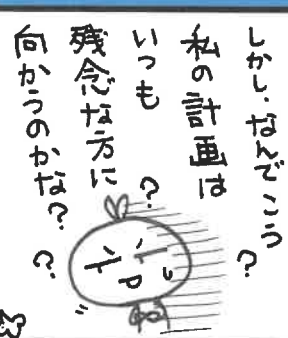 しかし、なんでこう
私の計画は
いつも
残念な方に
向かうのかな？
？
？
？